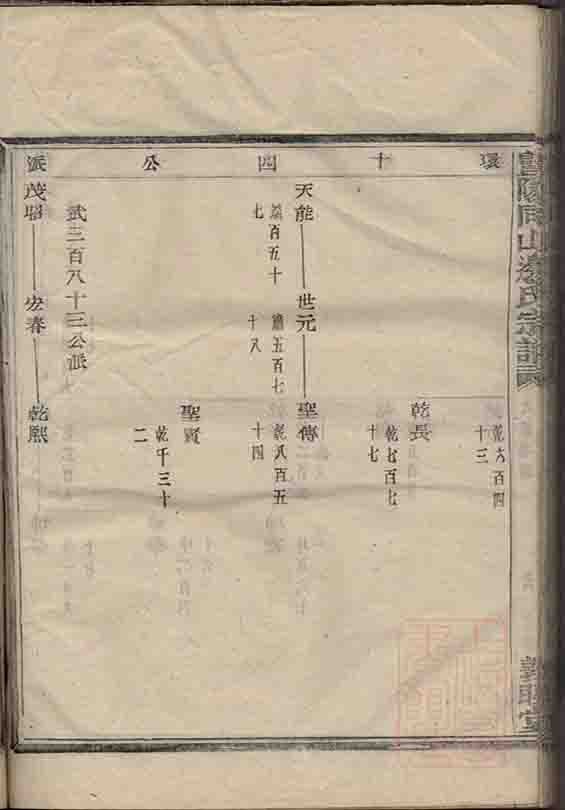 暨陽同山邊氏宗譜
環十四公派
乾六百四十三
乾長
乾七百七十七
天能——世元——聖傳
百五十七
五百七十八
乾八百五十四
聖賢
乾千三十二
武三百八十三公派
茂昭——宏春——乾熙